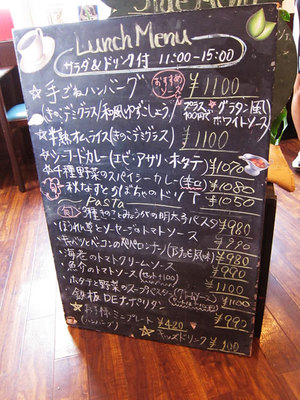 Lunch Menu
サラダ&ドリンク付 11:00-15:00
☆手ごねハンバーグ おすすめソース ¥1100
(きのこデミグラス/和風ゆずしょう) プラス100円で グラタン風 ホワイトソース
☆半熟オムライス(きのこデミグラス) ¥1100
☆シーフードカレー(エビ・アサリ・ホタテ) ¥1070
種野菜のスパイシーカレー 辛口 ¥1080
なすとかぼちゃのドリア ¥1050
Pasta
旬 3種きのことみょうがの明太子パスタ ¥980
・ほうれん草とソーセージのトマトソース ¥990
・キャベツとベーコンのペペロンチーノ ¥980
・海老のトマトクリームソース ¥990
・魚介のトマトソース ¥1100
・ホタテと野菜のスープパスタ ¥1100
・鉄板DEナポリタン ¥990
お子様ミニプレート ¥420
(ハンバーグ)
キッズドリンク ¥100